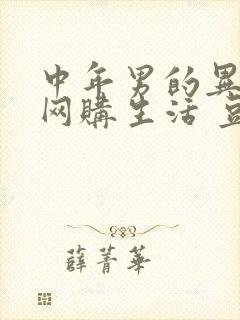 中年男的異
网購生活 豆
薛菁華